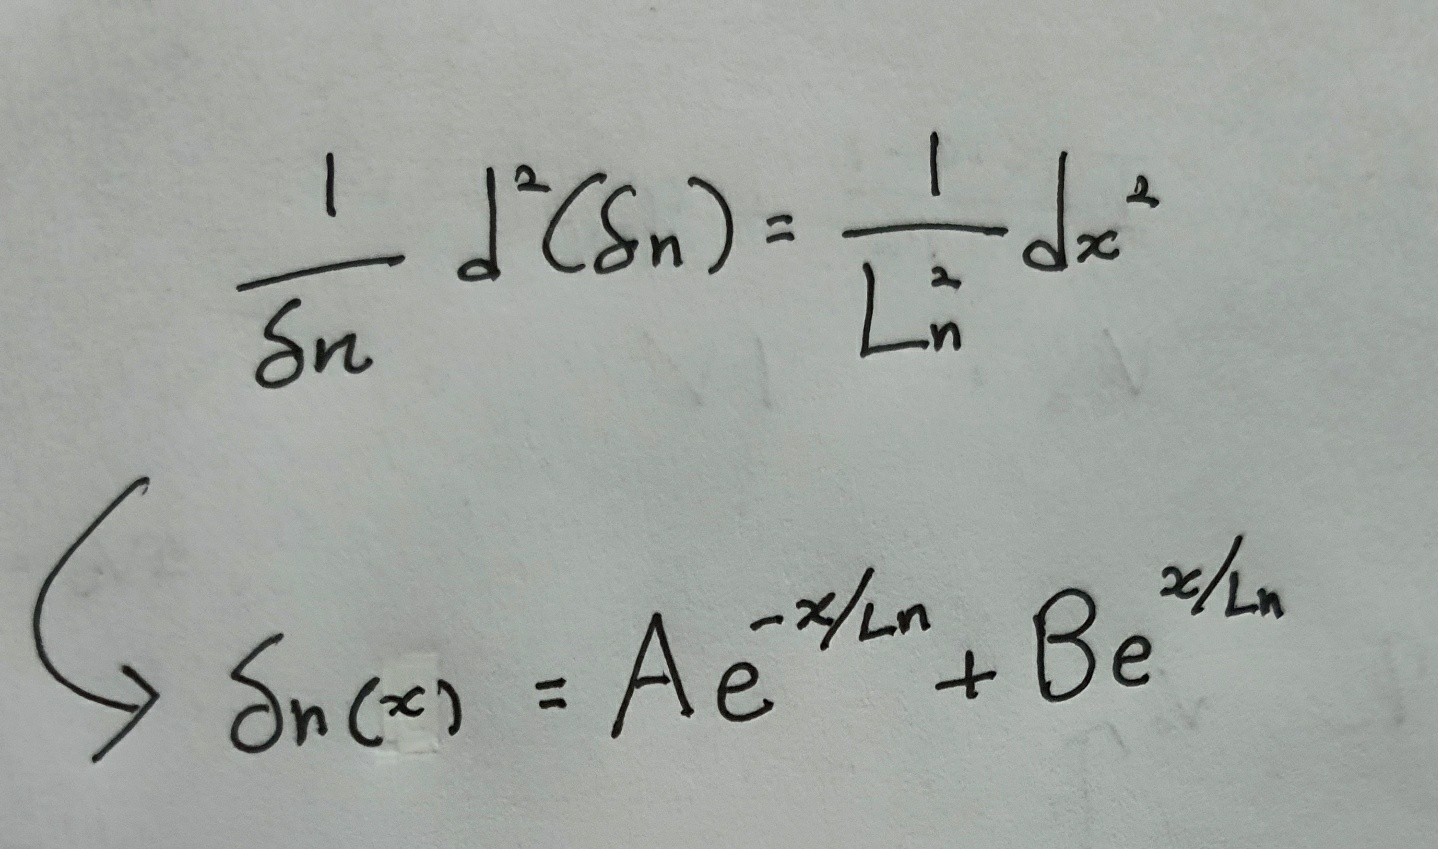 1/δn d²(δn) = 1/Ln² dx²
δn(x) = Ae^(-x/Ln) + Be^(x/Ln)